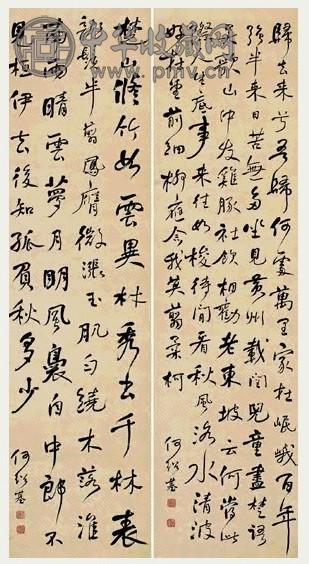 中华收藏网
www.pmv.cn
歸去來兮吾歸何處萬里家在岷峨百年
強半來日苦無多坐見黃州載閏兒童盡楚語
吳歌山中友雞豚社飲相勸老東坡云何當此
去人生底事來往如梭待閒看秋風洛水清波
好在堂前細柳應念我莫翦柔柯
何紹基
楚山修竹如雲異材秀出千林表
龍鬚半翦鳳膺微漲玉肌勻繞木落淮
南雨晴雲夢月明風裊自中郎不
見桓伊去後知孤負秋多少
何紹基